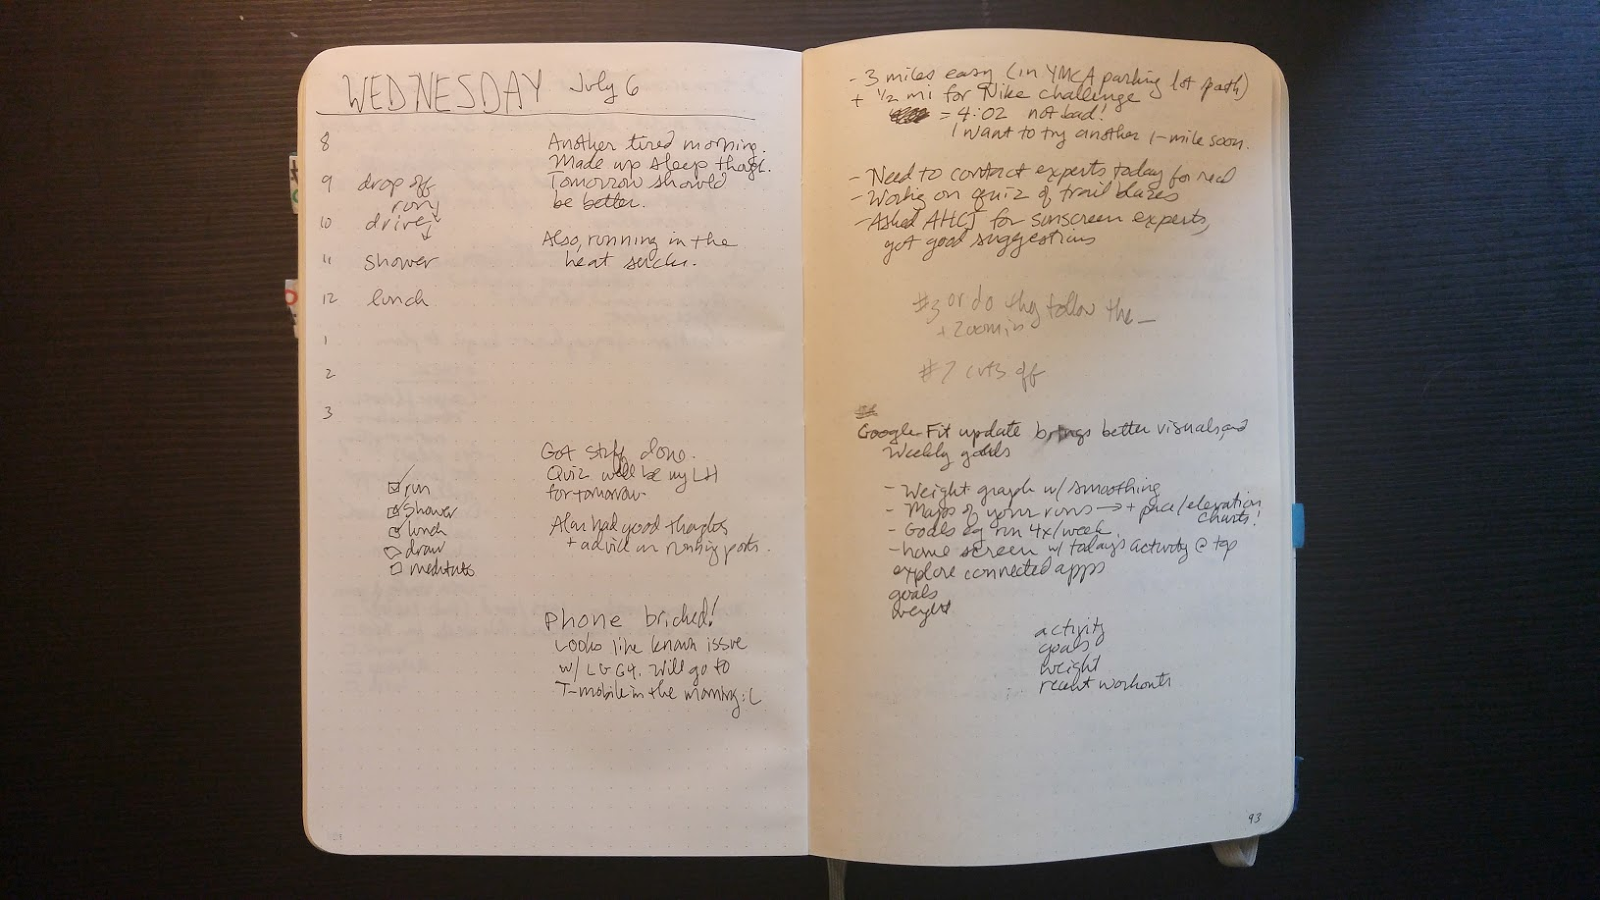 WEDNESDAY July 6
8
9 drop off
run
10 drive
11 shower
12 lunch
1
2
3
Another tired morning.
Made up sleep though.
Tomorrow should
be better.
Also, running in the
heat sucks.
Got stuff done.
Quiz will be my LH
for tomorrow.
Alan had good thoughts
+ advice on running posts.
run
shower
lunch
draw
meditate
phone bricked!
Looks like known issue
w/ LG G4. Will go to
T-mobile in the morning :(
- 3 miles easy (in YMCA parking lot path)
+ 1/2 mi for Nike challenge
= 4:02 not bad!
I want to try another 1-mile soon.
- Need to contact experts today for real
- Working on quiz of trail blazes
- Asked AHCJ for sunscreen experts,
got good suggestions
#3 or do they follow the _
+ zoom in
#7 cuts off
Google Fit update brings better visuals and
weekly goals
- Weight graph w/ smoothing
- Maps of your runs → + pace/elevation
charts!
- Goals eg run 4x/week
- home screen w/ today's activity @ top
explore connected apps
goals
weight
activity
goals
weight
recent workouts
93